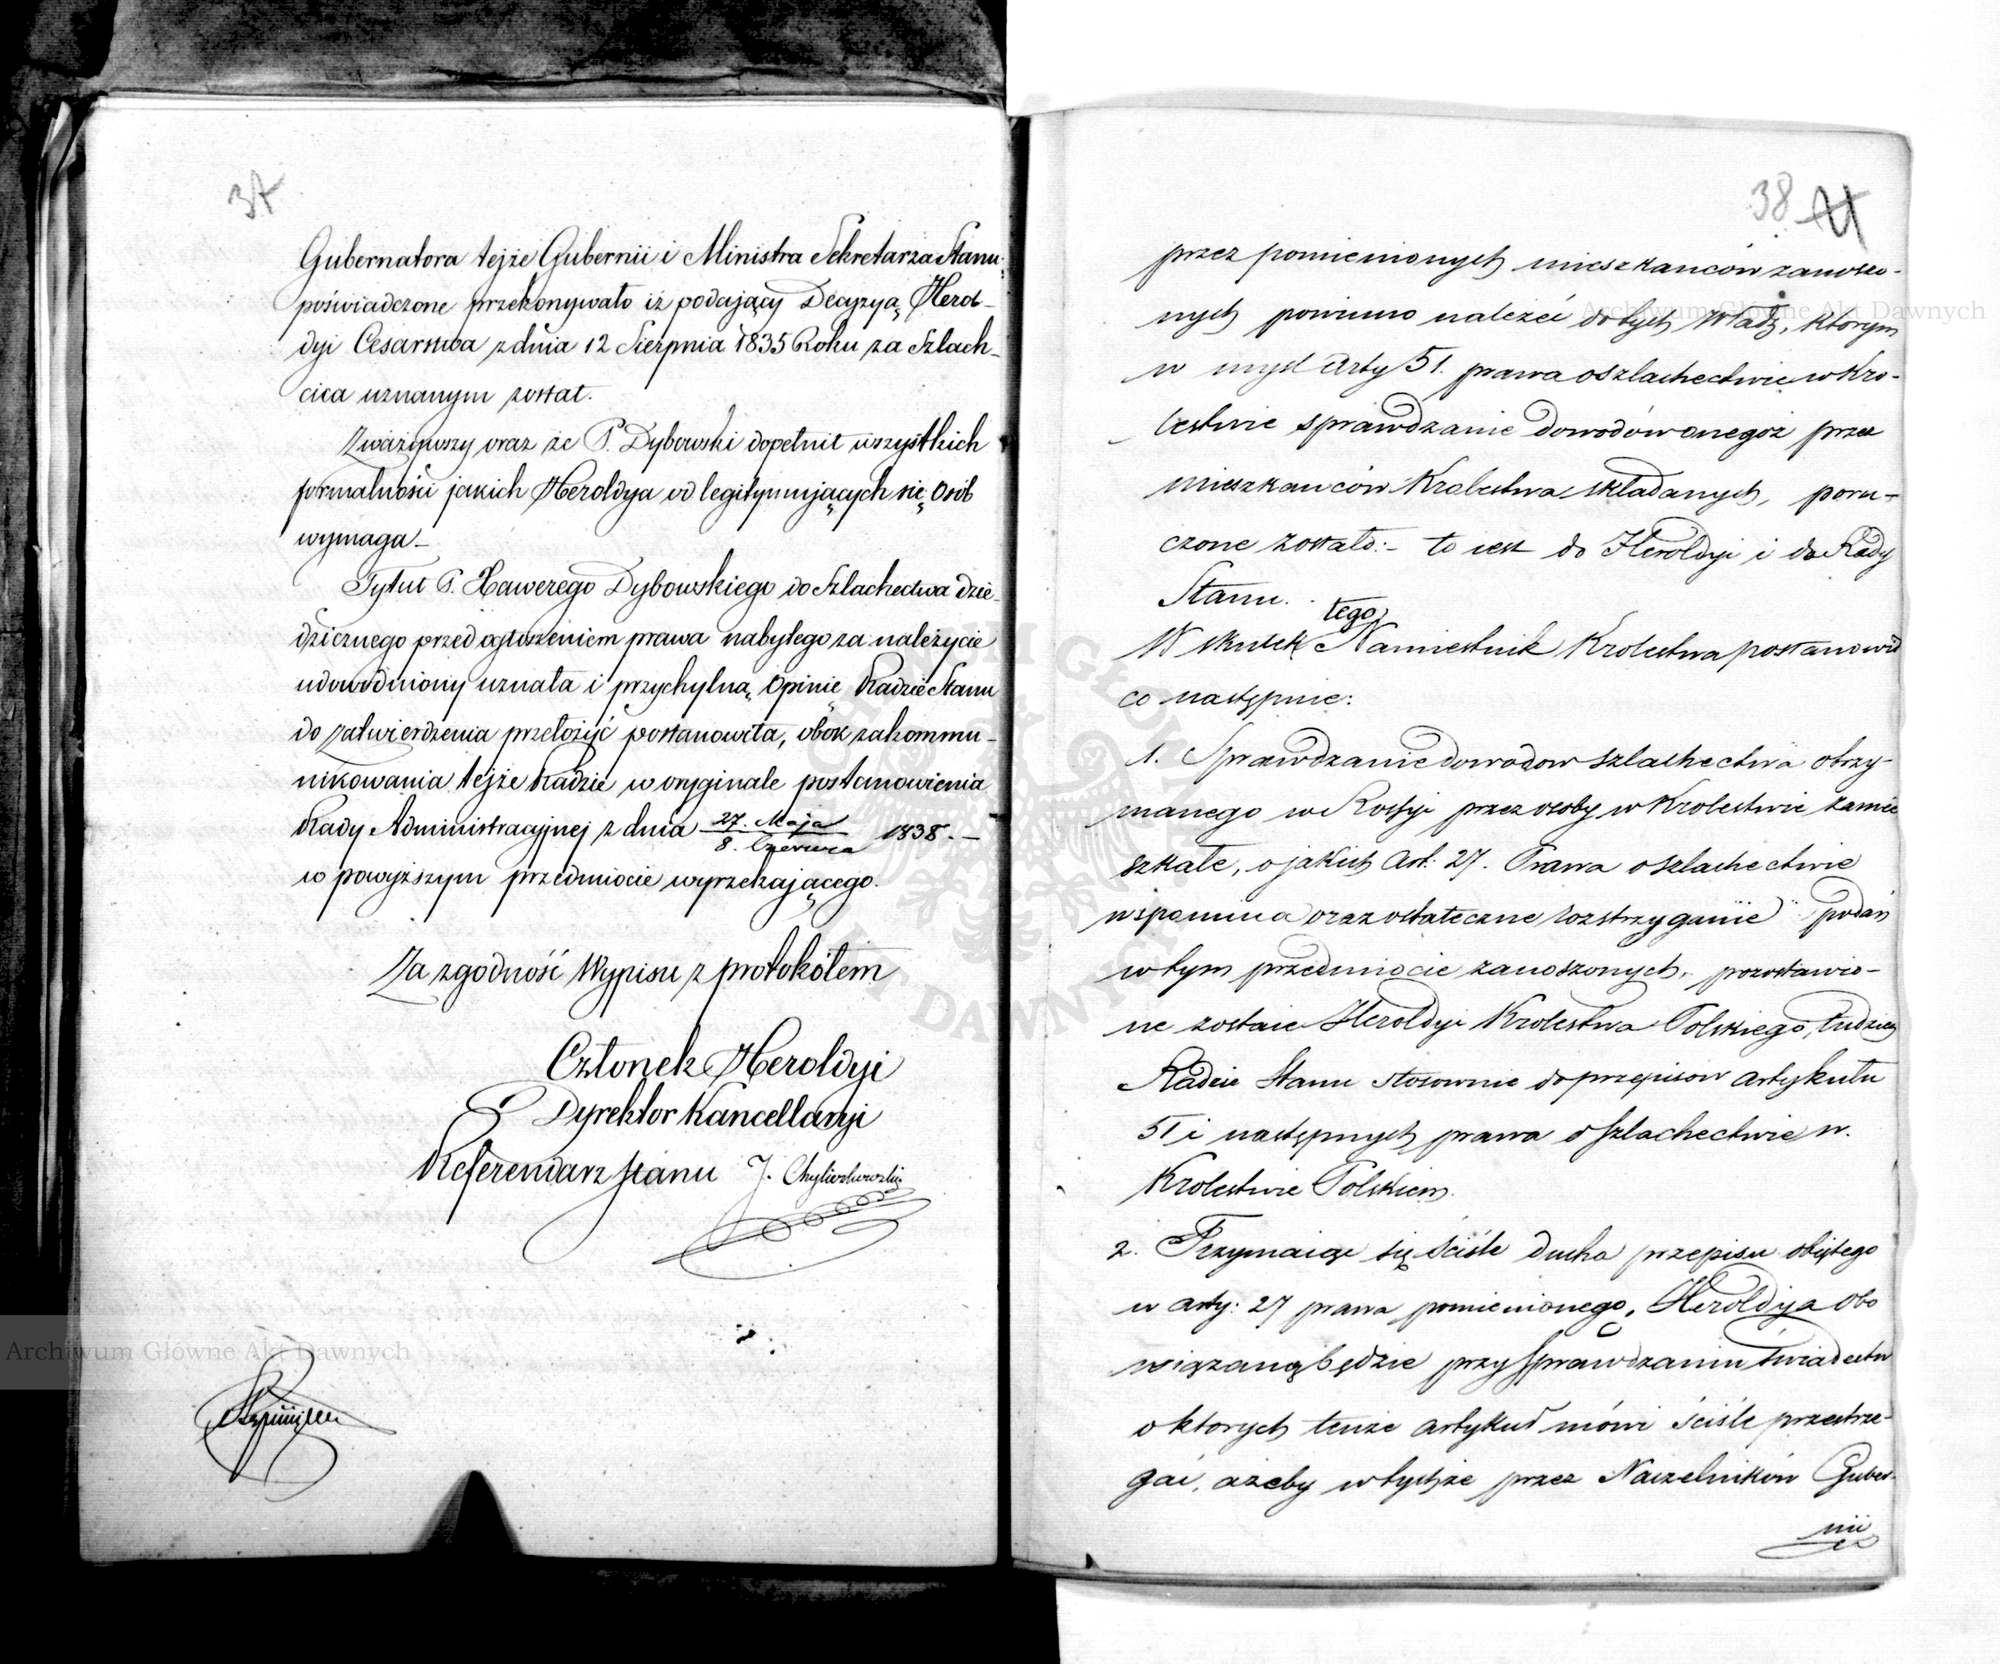 37
Gubernatora tejże Gubernii i Ministra Sekretarza Stanu
poświadczone przekonywało iż podający Decyzyą Herol-
dyi Cesarstwa z dnia 12 Sierpnia 1835 Roku za Szlach-
cica uznanym został.
Zważywszy oraz że P. Dybowski dopełnił wszystkich
formalności jakich Heroldya od legitymujących się Osób
wymaga_
Tytuł P. Xawerego Dybowskiego do Szlachectwa dzie-
dzicznego przed ogłoszeniem prawa nabytego za należycie
udowodniony uznała i przychylną Opinię Radzie Stanu
do zatwierdzenia przełożyć postanowiła, obok zakommu-
nikowania tejże Radzie w oryginale postanowienia
Rady Administracyjnej z dnia 27. Maja / 8. Czerwca 1838. -
w powyższym przedmiocie wyrzekającego.
Za zgodność Wypisu z protokółem
Członek Heroldyi
Dyrektor Kancellaryi
Referendarz Stanu J. Chyliczkowski
38
przez pomienionych mieszkanców zanoszo-
nych powinno należeć do tych Władz, którym
w mysl Arty 51. prawa o szlachectwie w Kro-
lestwie sprawdzanie dowodów onegoż przez
mieszkanców Krolestwa składanych, poru-
czone zostało:- to iest do Heroldyi i do Rady
Stanu.
W skutek tego Namiestnik Krolestwa postanowił
co następnie:
1. Sprawdzanie dowodow szlachectwa otrzy-
manego w Rossyi przez osoby w Krolestwie zamie
szkałe, o jakich Art: 27. Prawa o szlachectwie
wspomina oraz ostateczne rozstrzyganie podań
w tym przedmiocie zanoszonych, pozostawio-
ne zostaie Heroldyi Krolestwa Polskiego, tudzież
Radzie Stanu stosownie do przepisow artykułu
51 i następnych prawa o szlachectwie w.
Krolestwie Polskiem.
2. Trzymaiąc się ściśle ducha przepisu obiętego
w arty: 27 prawa pomienionego, Heroldya obo
wiązaną będzie przy sprawdzaniu świadectw
o ktorych tenże artykuł mówi ściśle przestrze-
gać, ażeby w tychże przez Naczelników Guber-
nii
Archiwum Główne Akt Dawnych
Archiwum Główne Akt Dawnych